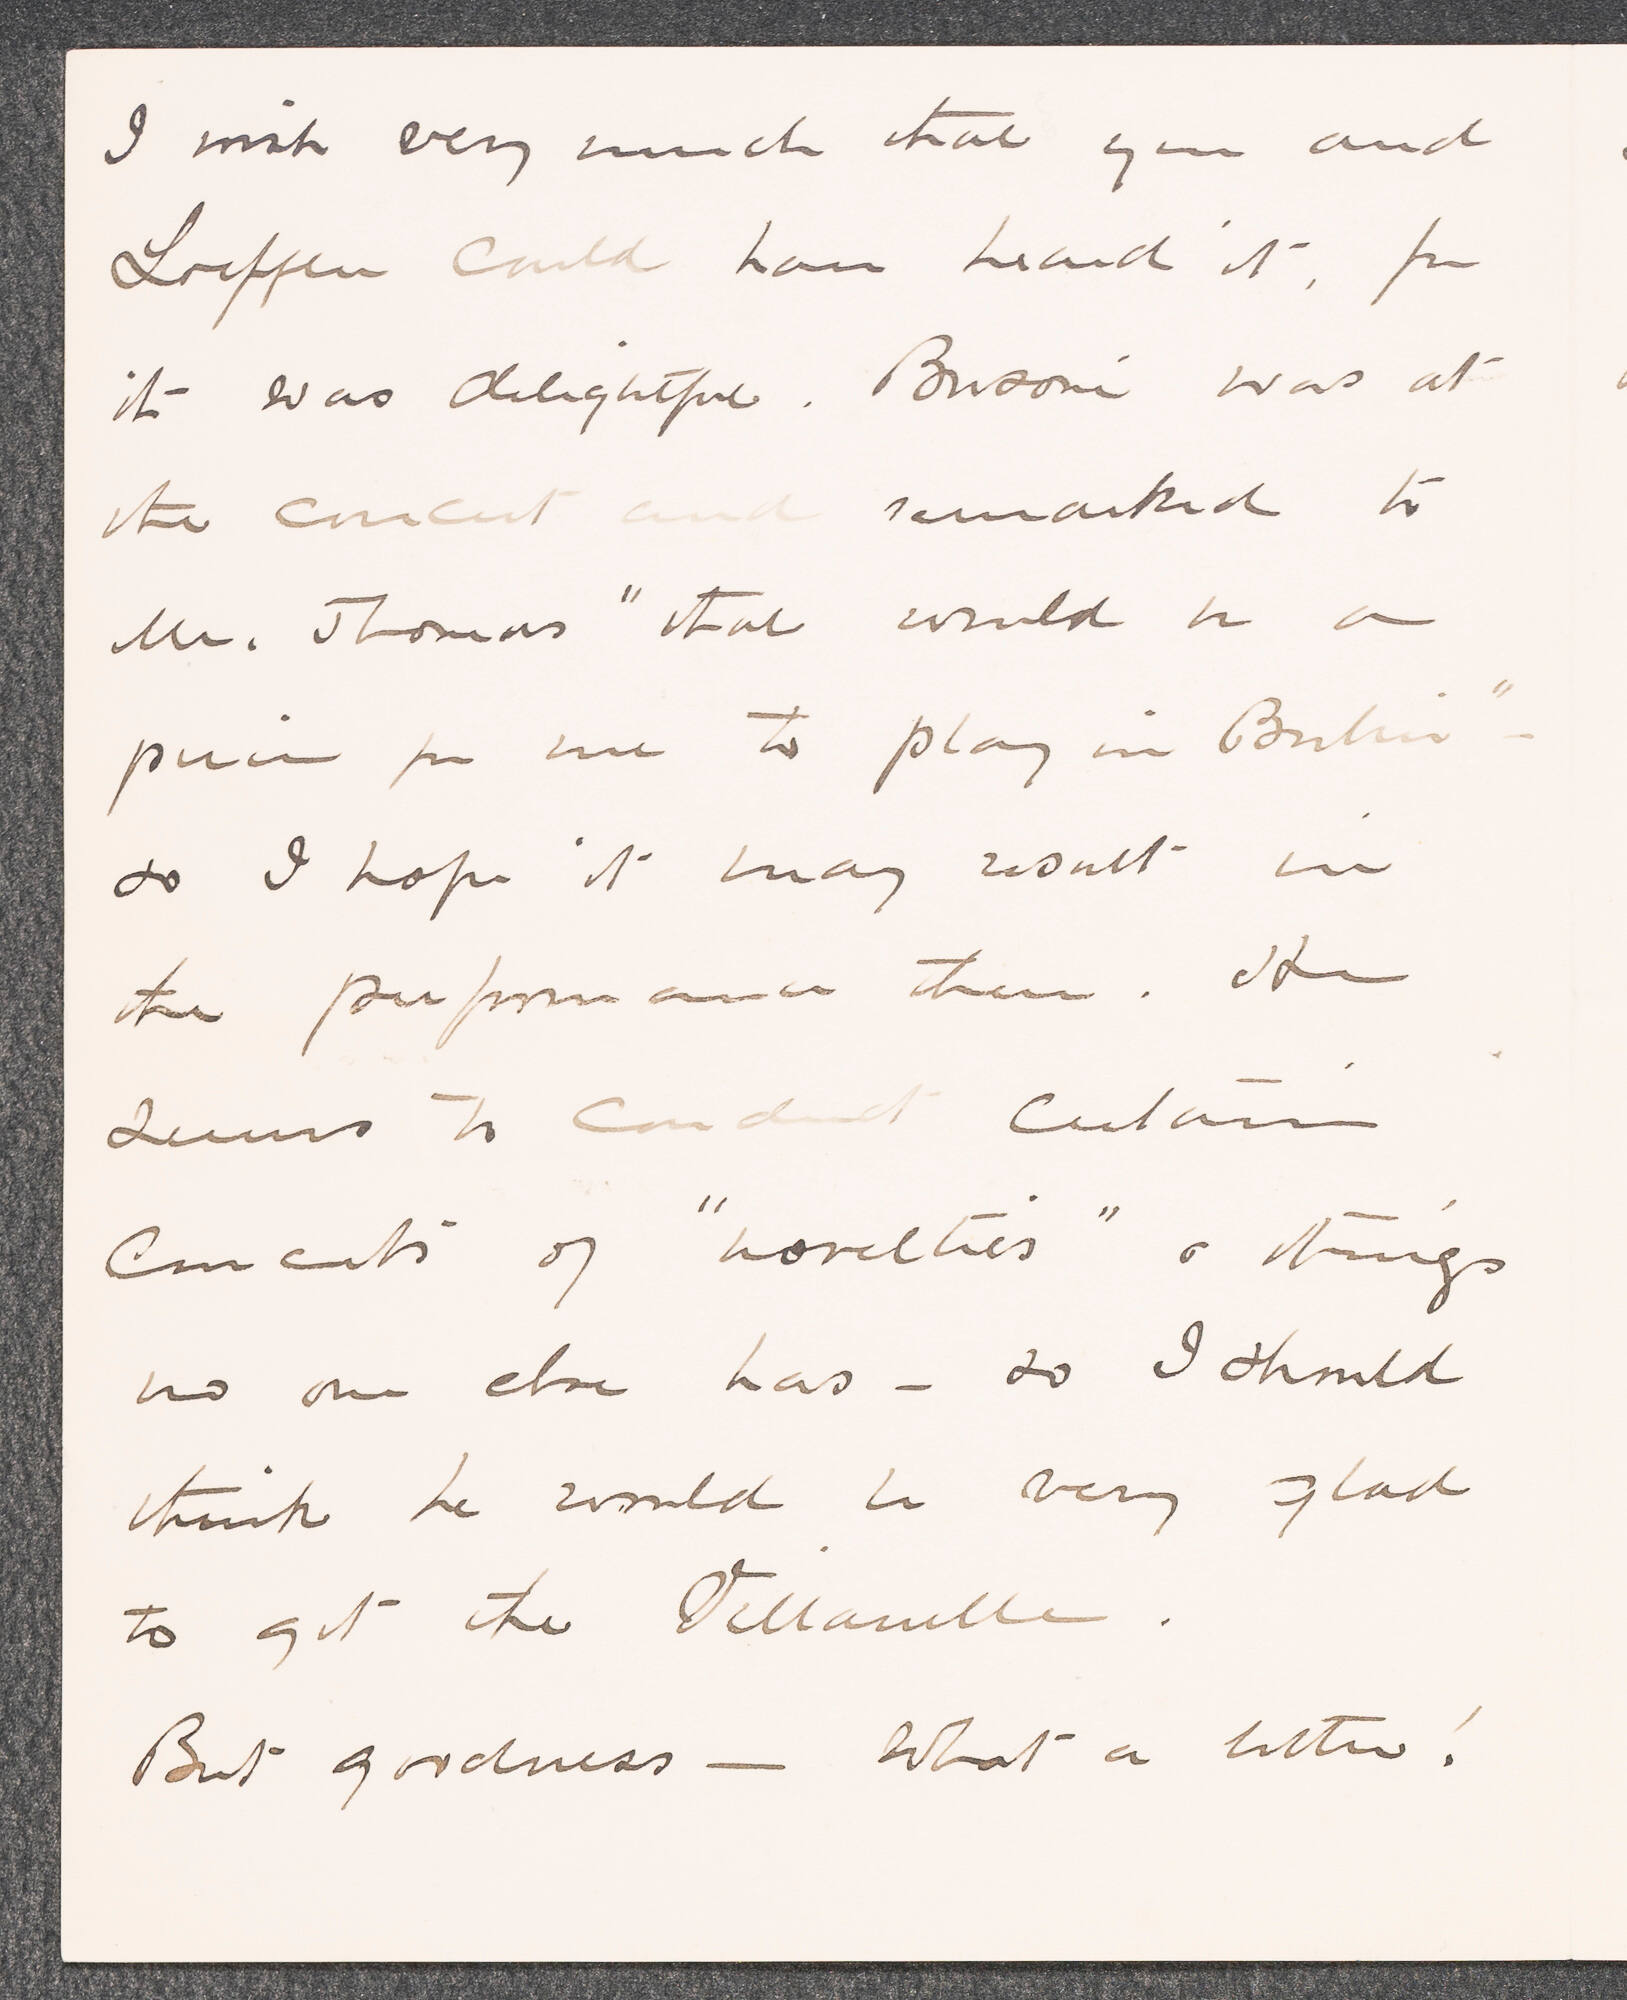 I wish very much that you and
Loeffler could have heard it, for
it was delightful. Busoni was at
the concert and remarked to
Mr. Thomas "that would be a
piece for me to play in Berlin" -
so I hope it may result in
the performance there. He
seems to conduct certain
concerts of "novelties" & things
no one else has - so I should
think he would be very glad
to get the Villanelle.
But goodness — what a letter!